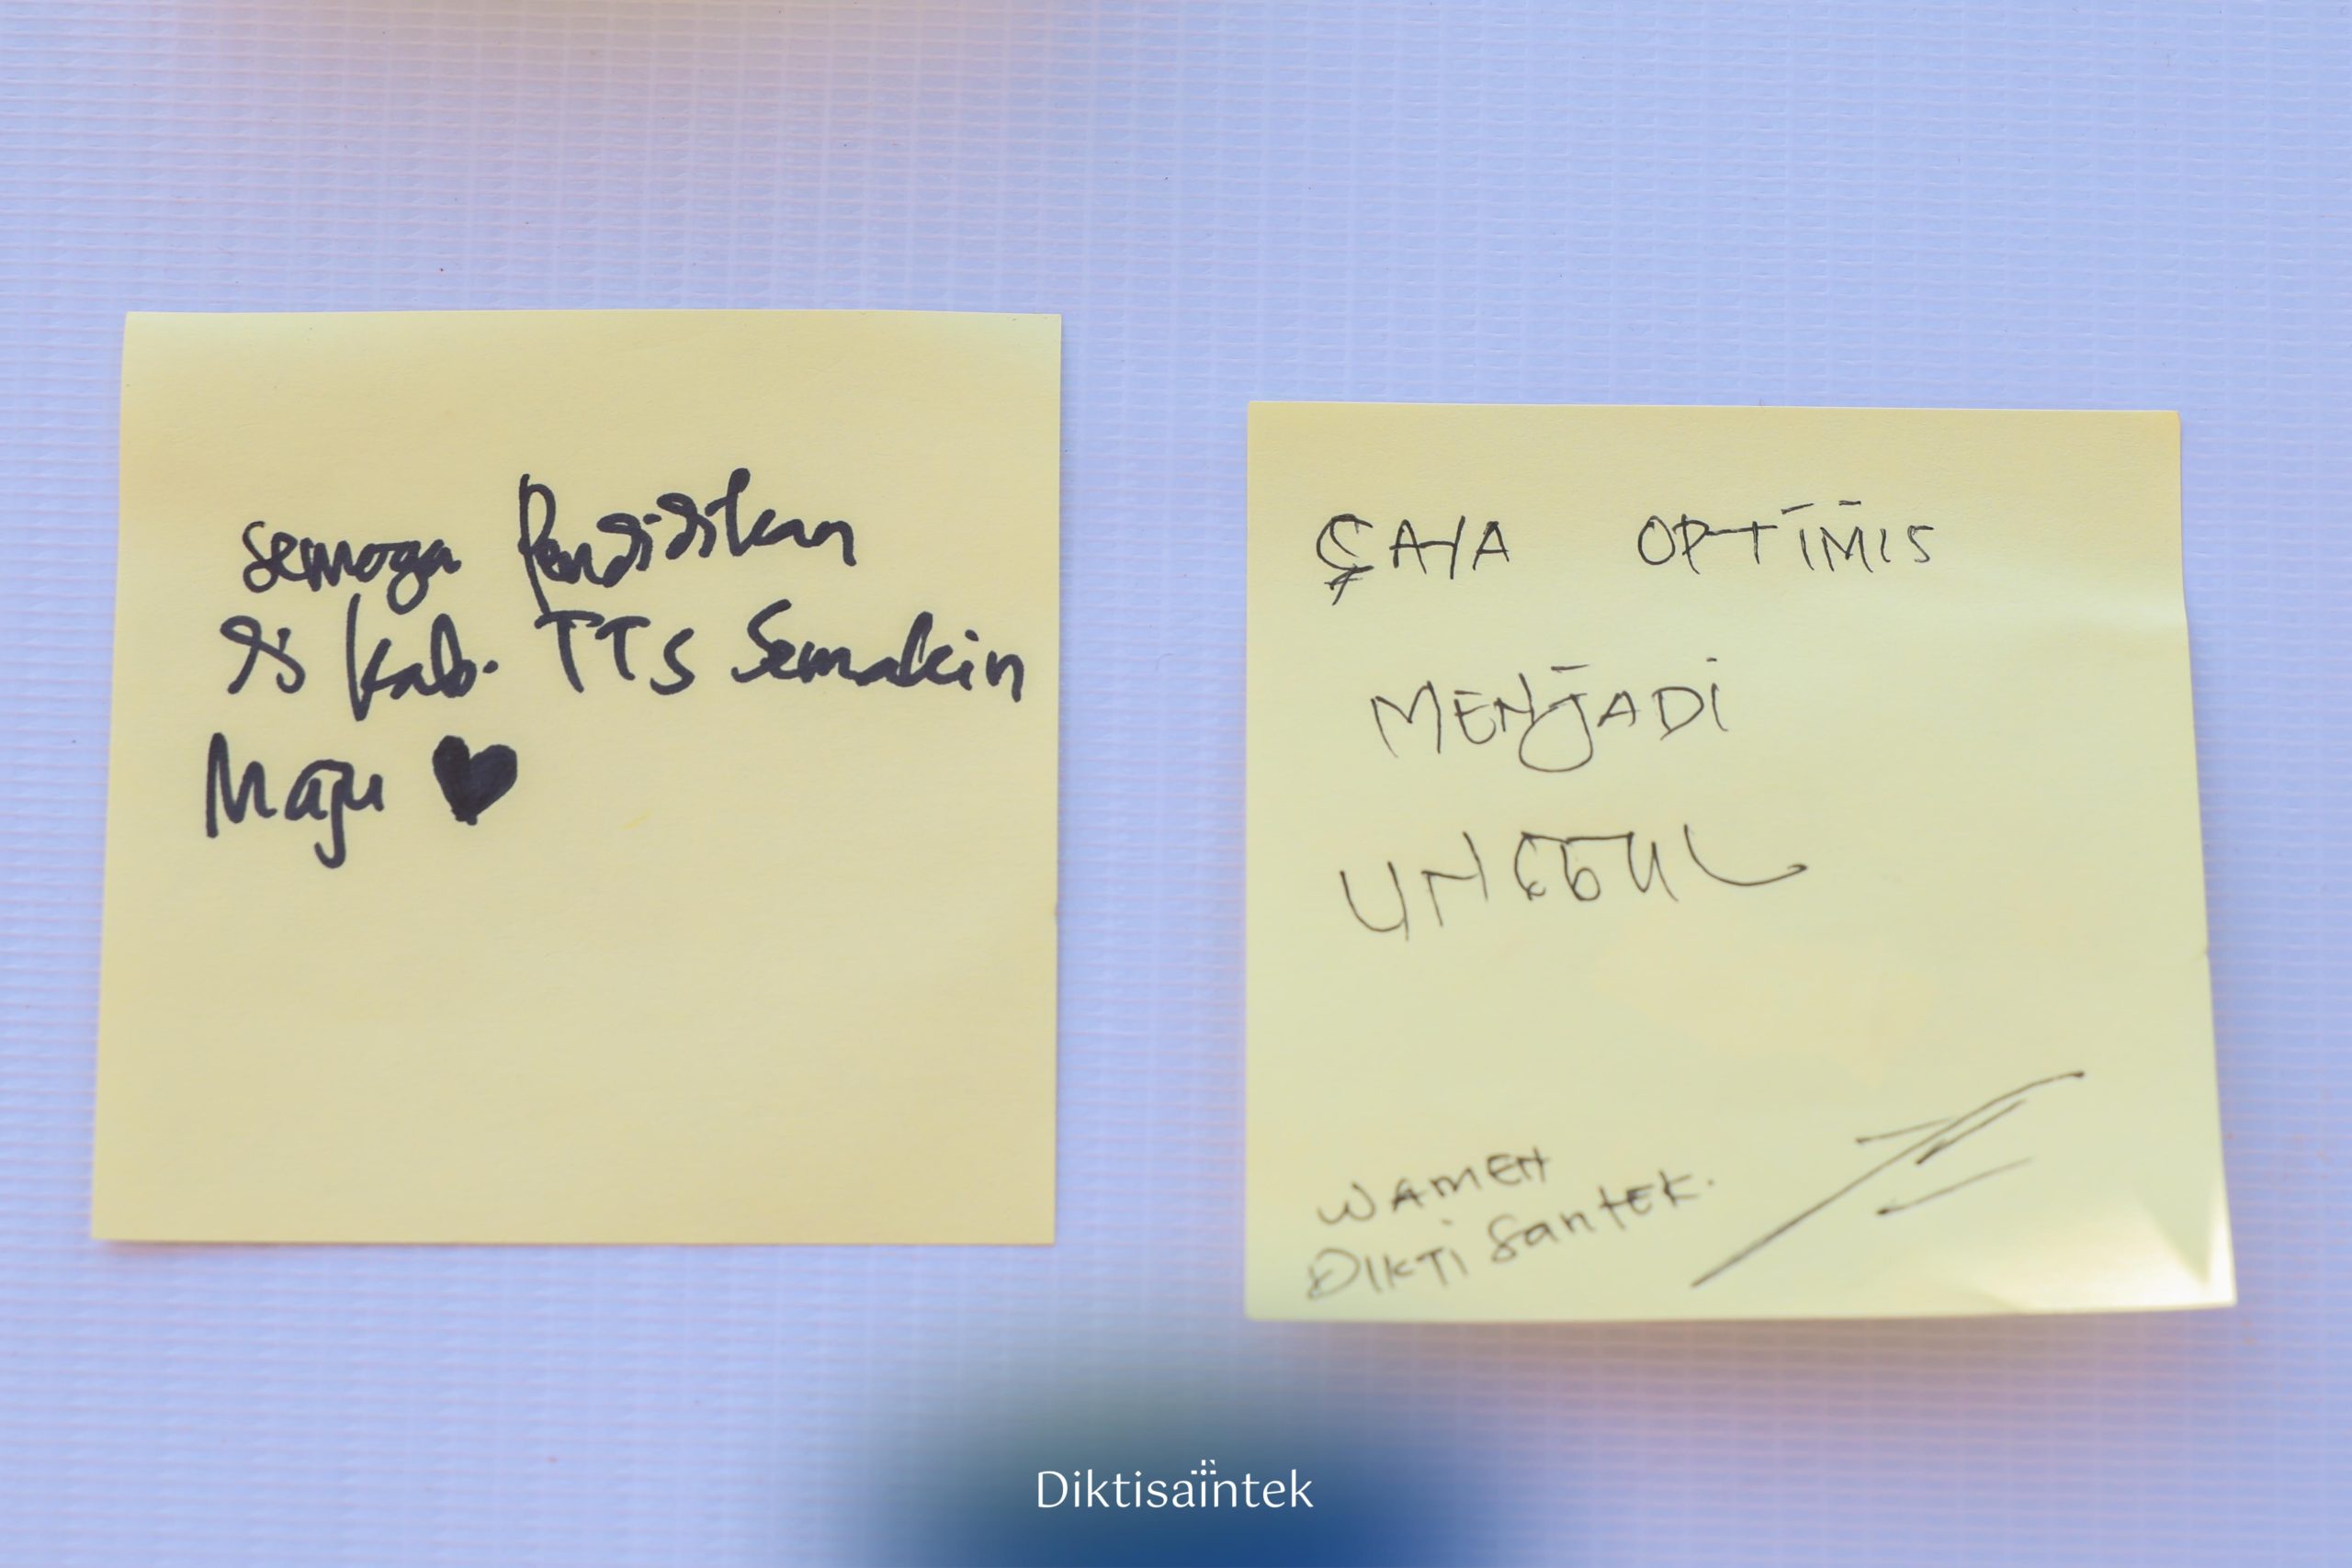 semoga Pendidikan
di Kab. TTS Semakin
Maju ♥
SAYA OPTIMIS
MENJADI
UNGGUL
WAMEN
DIKTI Santek.
Diktisaintek